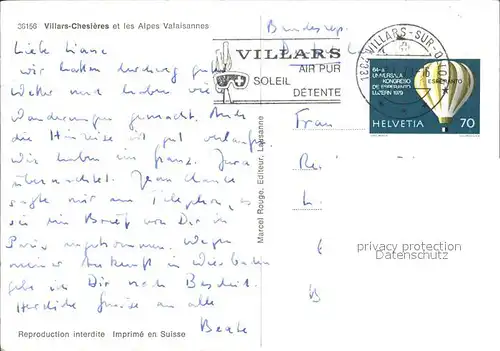 36156 Villars-Chesières et les Alpes Valaisannes
Liebe Liane
wir hatten durchweg gutes
Wetter und haben viele
Wanderungen gemacht. Auch
die Hinreise ist gut verlaufen
wir haben im franz. Jura
übernachtet. Jean
sagte mir am Telephon, es
sei ein Brief von Dir in
Paris angekommen. Wegen
meiner Ankunft in Wiesbaden
gebe ich Dir noch Bescheid.
Herzliche Grüsse an alle
Beate
Reproduction interdite Imprimé en Suisse
Marcel Rouge, Editeur, Lausanne
Bundesrep.
VILLARS
AIR PUR
SOLEIL
DÉTENTE
1884 VILLARS-SUR-OLLON
64-A
UNIVERSALA
KONGRESO
DE ESPERANTO
LUZERN 1979
ESPERANTO
HELVETIA 70
Frau
privacy protection
Datenschutz